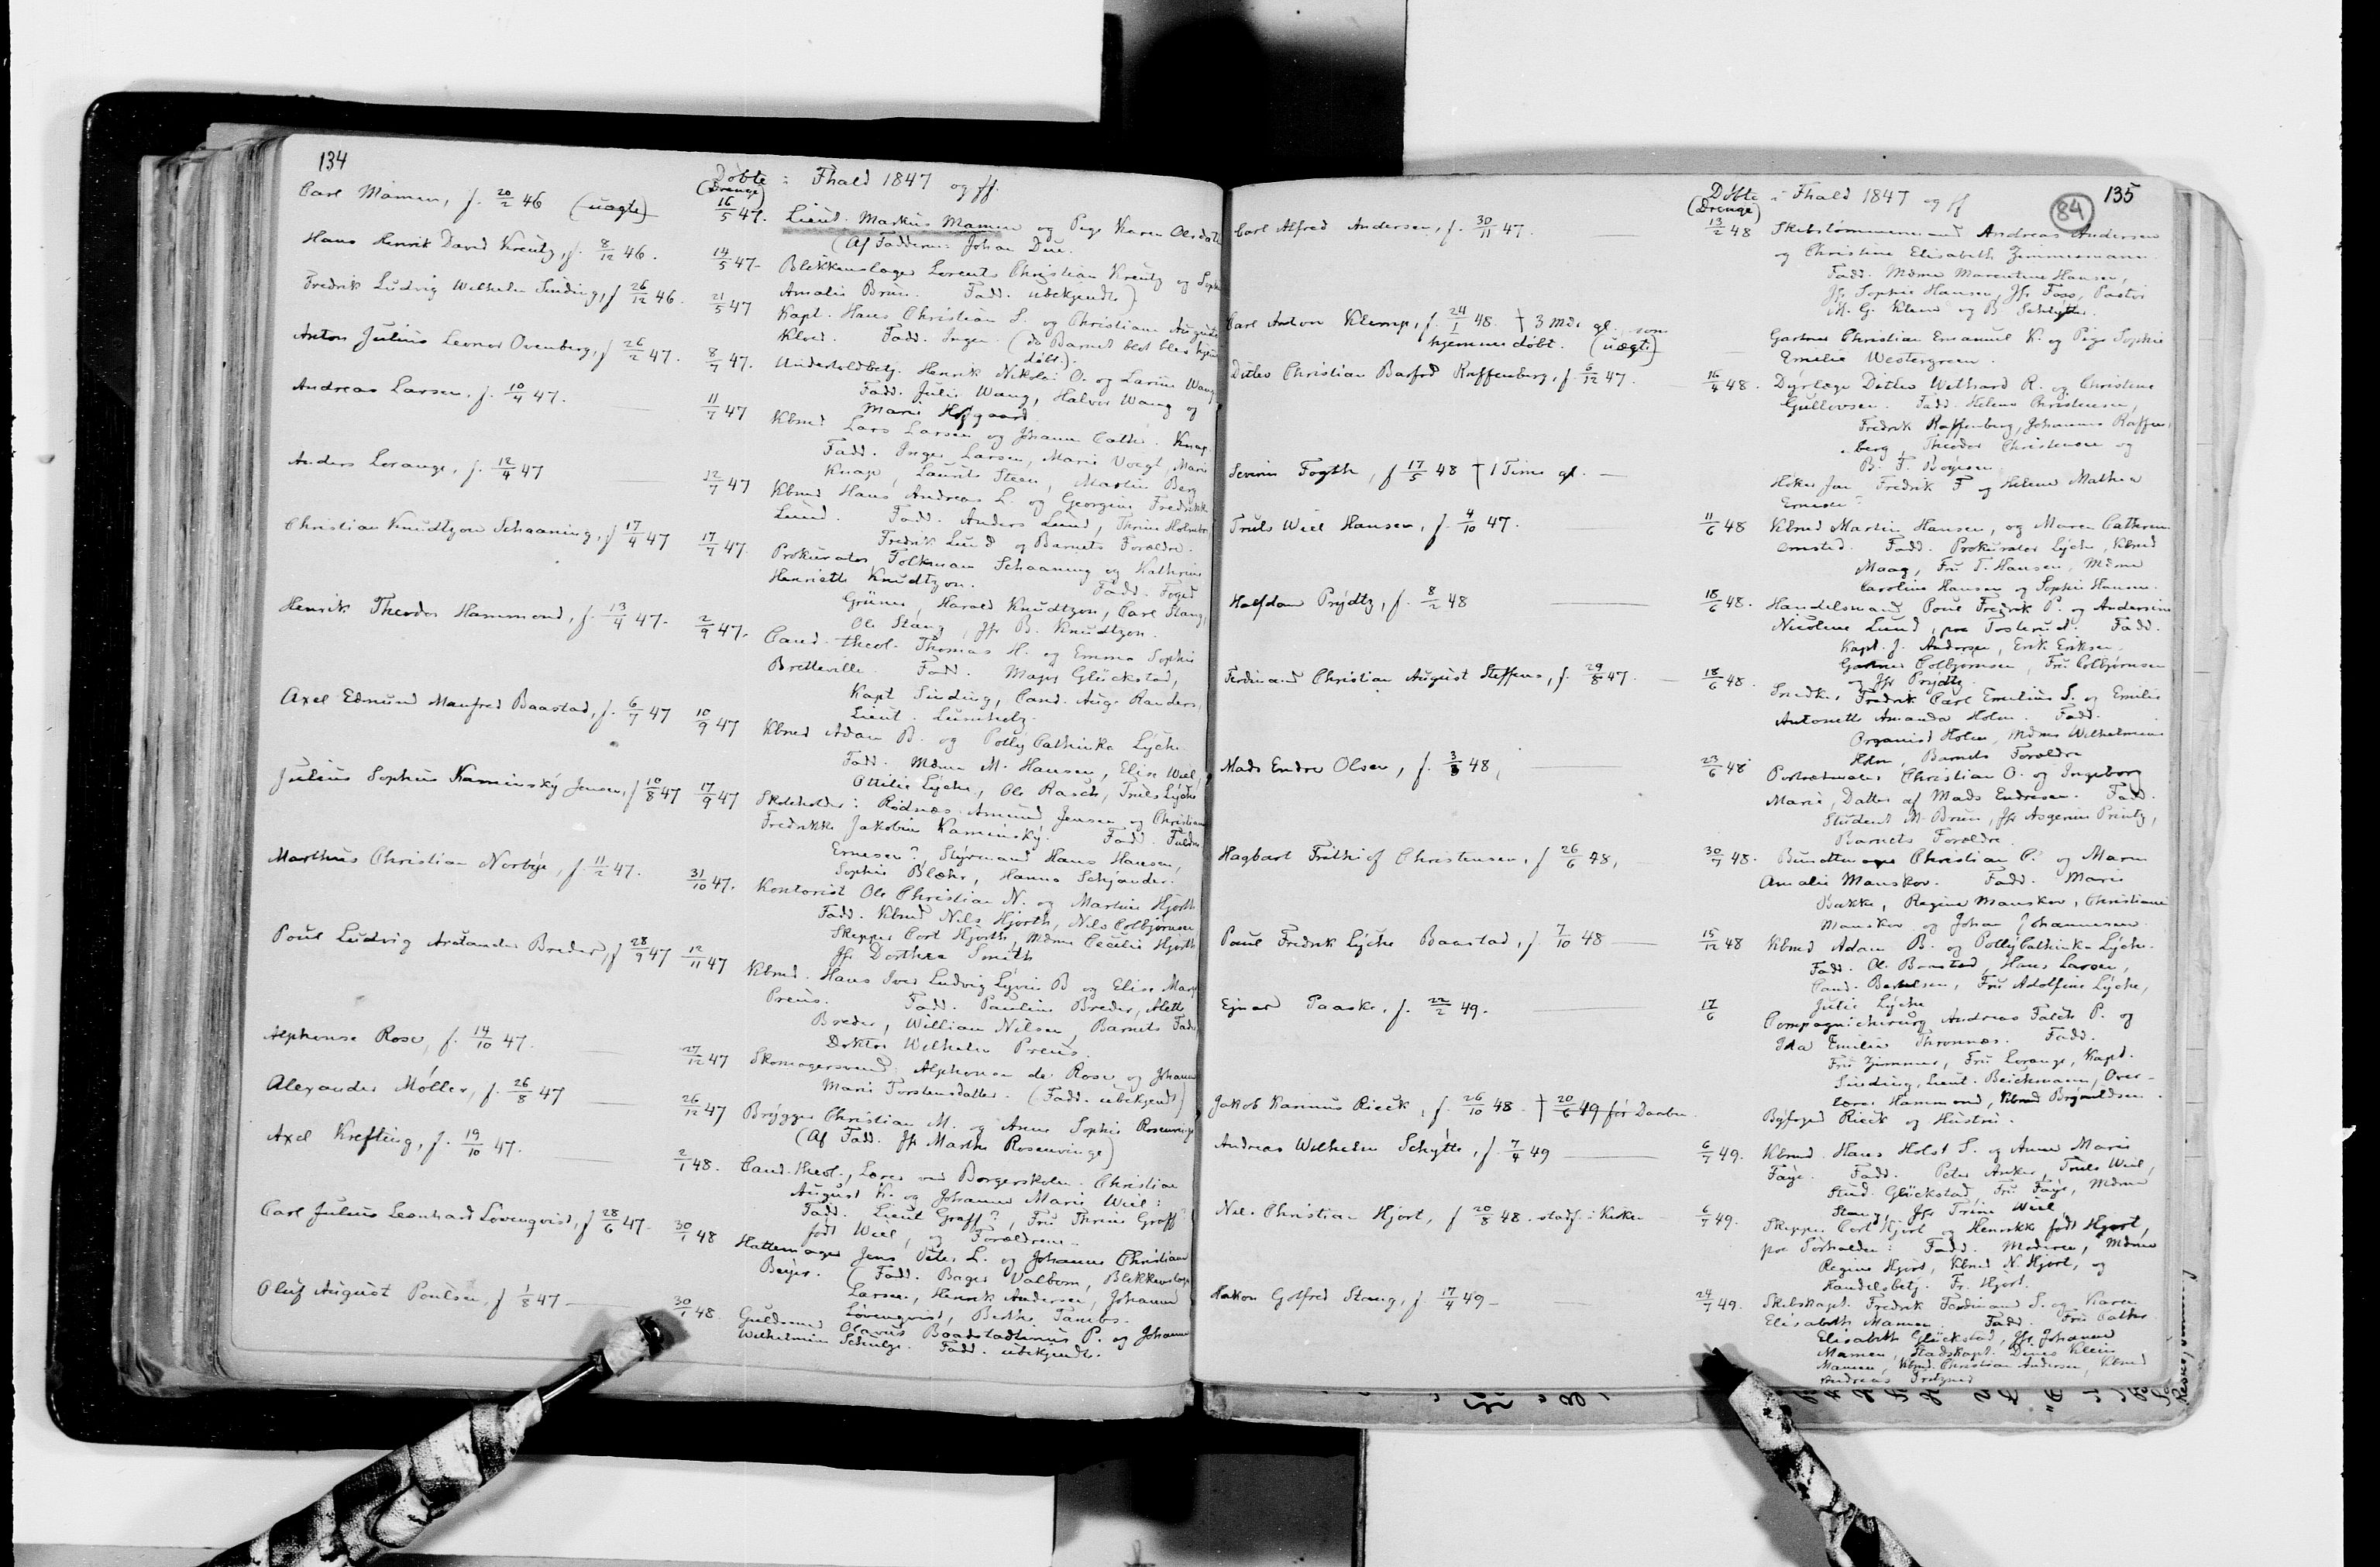 134
Døbte i Fhald 1847 og ff.
(Drenge)
Carl Mamen, f. 20/2 46 (uægte) 16/5 47. Lieut. Markus Mamen og Pige Karen Olsdatter
(Af Faddere: Johan Due.
Hans Henrik David Kreutz, f. 8/12 46. 14/5 47- Blikkenslager Lorents Christian Kreutz og Sophie
Amalie Bruun. Fadd. ubekjendte)
Fredrik Ludvig Wilhelm Sinding, f 26/12 46. 21/5 47 Kapt. Hans Christian S. og Christiane Augusta
Kloed. Fadd. Ingen. (da Barnet blot blev hjem
døbt.).
Anton Julius Leonor Ovenberg, f 26/2 47. 8/7 47. Underholdbetj. Henrik Nikolai O. og Larine Wang
Fadd. Julie Wang, Halvor Wang og
Marie Hofgaard.
Andreas Larsen, f. 10/4 47. 11/7 47 Kbmd Lars Larsen og Johanne Cathr. Knap.
Fadd. Inger Larsen, Marie Voegt, Marie
Knap, Laurits Steen, Martin Berg
Anders Lorange, f. 12/4 47 12/7 47 Kbmd Hans Andreas L. og Georgine Fredrikke
Lund. Fadd. Anders Lund, Thrine Holmboe
Fredrik Lund og Barnets Forældre.
Christian Knudtzon Schaaning, f 17/4 47 17/7 47. Prokurator Folkman Schaaning og Kathrine
Henriette Knudtzon. Fadd. Foged
Grüner, Harald Knudtzon, Carl Stang,
Ole Stang, Jfr B. Knudtzon.
Henrik Theodor Hammond, f. 13/4 47. 2/9 47. Cand. theol. Thomas H. og Emma Sophie
Bretteville. Fadd. Major Glückstad,
Kapt Sinding, Cand. Aug. Randers,
Lieut. Lumholtz.
Axel Edmund Manfred Baastad, f. 6/7 47 10/9 47 Kbmd Adam B. og Polly Cathinka Lyche
Fadd. Mdme M. Hansen, Elise Wiel,
Ottilie Lyche, Ole Rasch, Truls Lyche
Julius Sophus Kaminsky Jensen, f 10/8 47 17/9 47 Skoleholder i Rødnæs Amund Jensen og Christiane
Fredrikke Jakobine Kaminsky. Fadd. Fuldm
Ernesen?, Styrmand Hans Hansen,
Sophie Blæhr, Hanna Schjander.
Marthius Christian Norbye, f. 11/2 47. 31/10 47. Kontorist Ole Christian N. og Martine Hjorth
Fadd. Kbmd Nils Hjorth, Nils Colbjørnsen
Skipper Cort Hjorth, Mdme Cecilie Hjorth
Jfr Dorthea Smith
Poul Ludvig Breder, f 28/9 47 12/11 47 Kbmd. Hans Iver Ludvig B og Elise Marg
Preus. Fadd. Pauline Breder, Alette
Breder, William Nilsen, Barnets Fader
Doktor Wilhelm Preus.
Alphonse Rose, f. 14/10 47. 27/12 47 Skomagersvend Alphonse de Rose og Johanne
Marie Torstensdatter. (Fadd. ubekjendt)
Alexander Møller, f. 26/8 47 26/12 47 Brygger Christian M. og Anne Sophie Rosenvinge
(Af Fadd. Jfr Marthe Rosenvinge)
Axel Krefting, f. 19/10 47. 2/1 48. Cand. theol., Lærer ved Borgerskolen Christian
August K. og Johanne Marie Wiel:
Fadd. Lieut Graff?, Fru Thrine Graff?
født Wiel, og Forældrene.
Carl Julius Leonhard Lovenqvist, f 28/6 47. 30/1 48 Hattemager Jens Peter L. og Johanne Christiane
Beyer. (Fadd. Bager Valbom, Blikkenslager
Larsen, Henrik Andersen, Johanne
Lövenqvist, Berthe Tambs.
Oluf August Poulsen, f 1/8 47 30/1 48. Guldsmed Olavus Baadstadtinus P. og Johanne
Wilhelmine Schulze. Fadd. ubekjendte.
135
84
Døbte i Fhald 1847 og ff
(Drenge)
Carl Alfred Andersen, f. 30/11 47. 13/2 48 Skibstømmermand Andreas Andersen
og Christine Elisabeth Zimmermann.
Fadd. Mdme Marentine Hansen,
Jfr Sophie Hansen, Jfr Foss, Pastor
G. Klem og B. Schlytter.
Carl Anton Klemp, f. 24/1 48. † 3 Mdr gl. som
hjemmedøbt. (uægte) Gartner Christian Emanuel K. og Pige Sophie
Emilie Westergreen.
Ditlev Christian Barfod Raffenberg, f. 5/12 47. 16/4 48. Dyrlæge Ditlev Withard R. og Christine
Gullovsen. Fadd. Helene Christensen,
Fredrik Raffenberg, Johannes Raffen-
berg, Theodor Christensen og
B. F. Børjesen.
Severin Fogth, f 17/5 48 † 1 Time gl. Høker Jan Fredrik F og Helene Mathea
Ernesen?
Truls Wiel Hansen, f. 4/10 47. 11/6 48 Kbmd Martin Hansen, og Maren Cathrine
Ornsted. Fadd. Prokurator Lyche, Kbmd
Maag, Fru T. Hansen, Mdme
Caroline Hansen og Sophie Hansen.
Halfdan Prydtz, f. 8/2 48 18/6 48. Handelsmand Poul Fredrik P. og Andersine
Nicoline Lund, paa Tosterud. Fadd.
Kapt. J. Andersen, Erik Eriksen,
Colbjørnsen, Fru Colbjørnsen
og Jfr Prydtz
Ferdinand Christian August Steffens, f. 29/8 47. 18/6 48. Snedker Fredrik Carl Emilius S. og Emilie
Antonette Amanda Holm. Fadd.
Organist Holm, Mdme Wilhelmine
Holm, Barnets Forældre
Mads Endre Olsen, f. 3/3 48, 23/6 48 Portrætmaler Christian O. og Ingeborg
Marie, Datter af Mads Endresen. Fadd.
Student M. Bruun, Jfr Asgerine Printz,
Barnets Forældre.
Hagbart Frithiof Christensen, f 26/6 48, 30/7 48. Buntmager Christian C. og Maren
Amalie Manskov. Fadd. Marie
Bakke, Regine Manskov, Christiane
Manskov og Johan Johannesen.
Paul Fredrik Lyche Baastad, f. 7/10 48 15/12 48 Kbmd Adam B. og Polly Cathinka Lyche.
Fadd. Ol. Baastad, Hans Larsen,
Cand. Berntsen, Fru Adolfine Lyche,
Julie Lyche
Ejnar Paaske, f. 22/2 49. 17/6 Compagnichirurg Andreas Falch P. og
Ida Emilie Thronnæs. Fadd.
Fru Zimmer, Fru Lorange, Kapt.
Sinding, Lieut. Beichmann, Over-
lærer Hammond, Kbmd Brynildsen.
Jakob Rasmus Rieck, f. 26/10 48 † 20/6 49 før Daaben. Byfoged Rieck og Hustru.
Andreas Wilhelm Schytte, f. 7/4 49 6/7 49. Kbmd. Hans Holst S. og Anne Marie
Faye. Fadd. Peter Anker, Truls Wiel,
Stud. Glückstad, Fru Faye, Mdme
Stang, Jfr Trine Wiel
Nils Christian Hjort, f 20/8 48. stadf. i Kirken 6/7 49. Skipper Cort Hjort og Henrikke født Hjort,
paa Sørhalden: Fadd. Moderen, Mdme
Regine Hjort, Kbmd N. Hjort, og
Handelsbetj. Fr. Hjort.
Hakon Gotfred Stang, f 17/4 49- 24/7 49. Skibskapt. Fredrik Ferdinand S. og Karen
Elisabeth Mamen. Fadd. Fru Cathr.
Elisabeth Glückstad, Jfr Johanne
Mamen, Stadskapt. Dines Klein
Mamen, Kbmd. Christian Andersen, Kbmd
Andreas